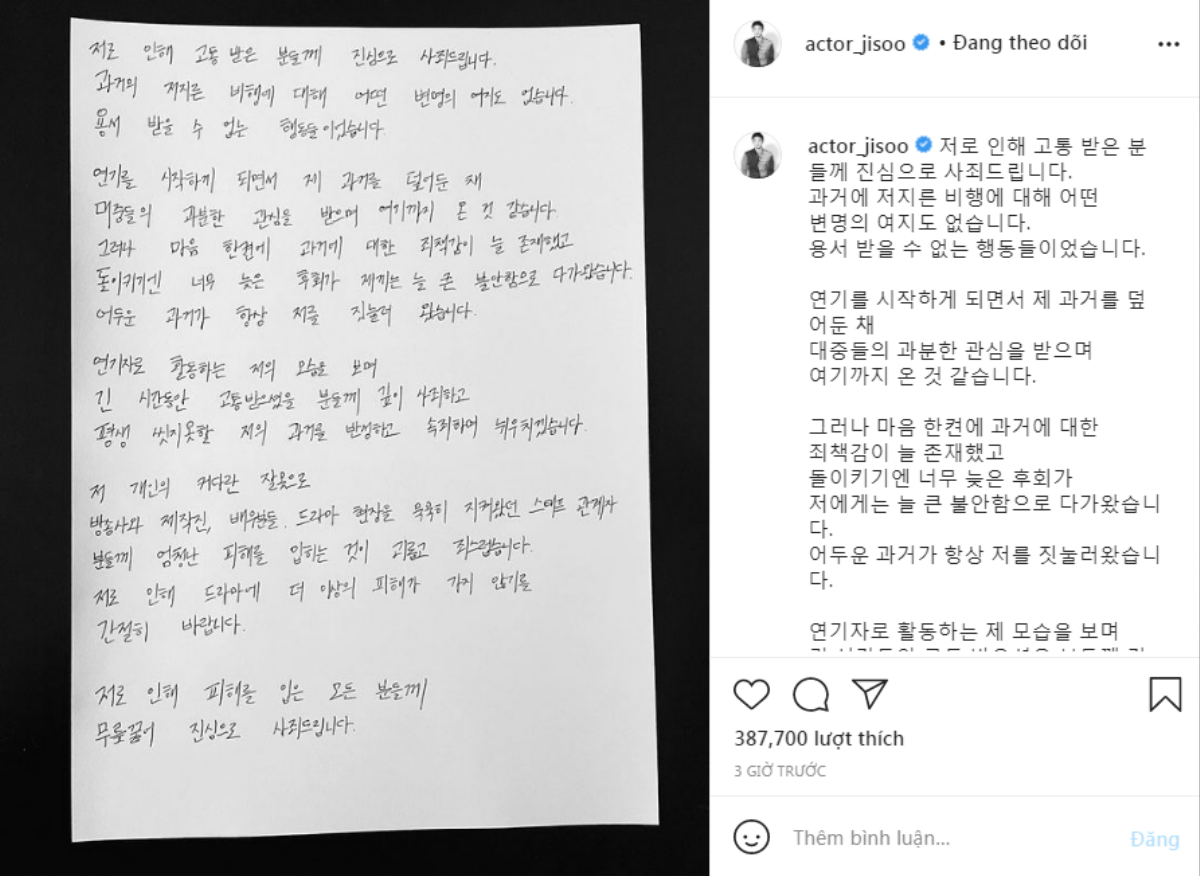 저로 인해 고통 받은 분들께 진심으로 사죄드립니다.
과거의 저지른 비행에 대해 어떤 변명의 여지도 없습니다.
용서 받을 수 없는 행동들이었습니다.
연기를 시작하게 되면서 제 과거를 덮어둔 채
대중들의 과분한 관심을 받으며 여기까지 온 것 같습니다.
그러나 마음 한켠에 과거에 대한 죄책감이 늘 존재했고
돌이키기엔 너무 늦은 후회가 제게는 늘 큰 불안함으로 다가왔습니다.
어두운 과거가 항상 저를 짓눌러 왔습니다.
연기자로 활동하는 저의 모습을 보며
긴 시간동안 고통받으셨을 분들께 깊이 사죄하고
평생 씻지못할 저의 과거를 반성하고 속죄하며 뉘우치겠습니다.
저 개인의 커다란 잘못으로
방송사와 제작진, 배우분들, 드라마 현장을 묵묵히 지켜왔던 스태프 관계자
분들께 엄청난 피해를 입히는 것이 괴롭고 죄스럽습니다.
저로 인해 드라마에 더 이상의 피해가 가지 않기를
간절히 바랍니다.
저로 인해 피해를 입은 모든 분들께
무릎꿇어 진심으로 사죄드립니다.
actor_jisoo • Đang theo dõi
actor_jisoo 저로 인해 고통 받은 분
들께 진심으로 사죄드립니다.
과거에 저지른 비행에 대해 어떤
변명의 여지도 없습니다.
용서 받을 수 없는 행동들이었습니다.
연기를 시작하게 되면서 제 과거를 덮
어둔 채
대중들의 과분한 관심을 받으며
여기까지 온 것 같습니다.
그러나 마음 한켠에 과거에 대한
죄책감이 늘 존재했고
돌이키기엔 너무 늦은 후회가
저에게는 늘 큰 불안함으로 다가왔습니
다.
어두운 과거가 항상 저를 짓눌러왔습니
다.
연기자로 활동하는 제 모습을 보며
387,700 lượt thích
3 GIỜ TRƯỚC
Thêm bình luận...
Đăng